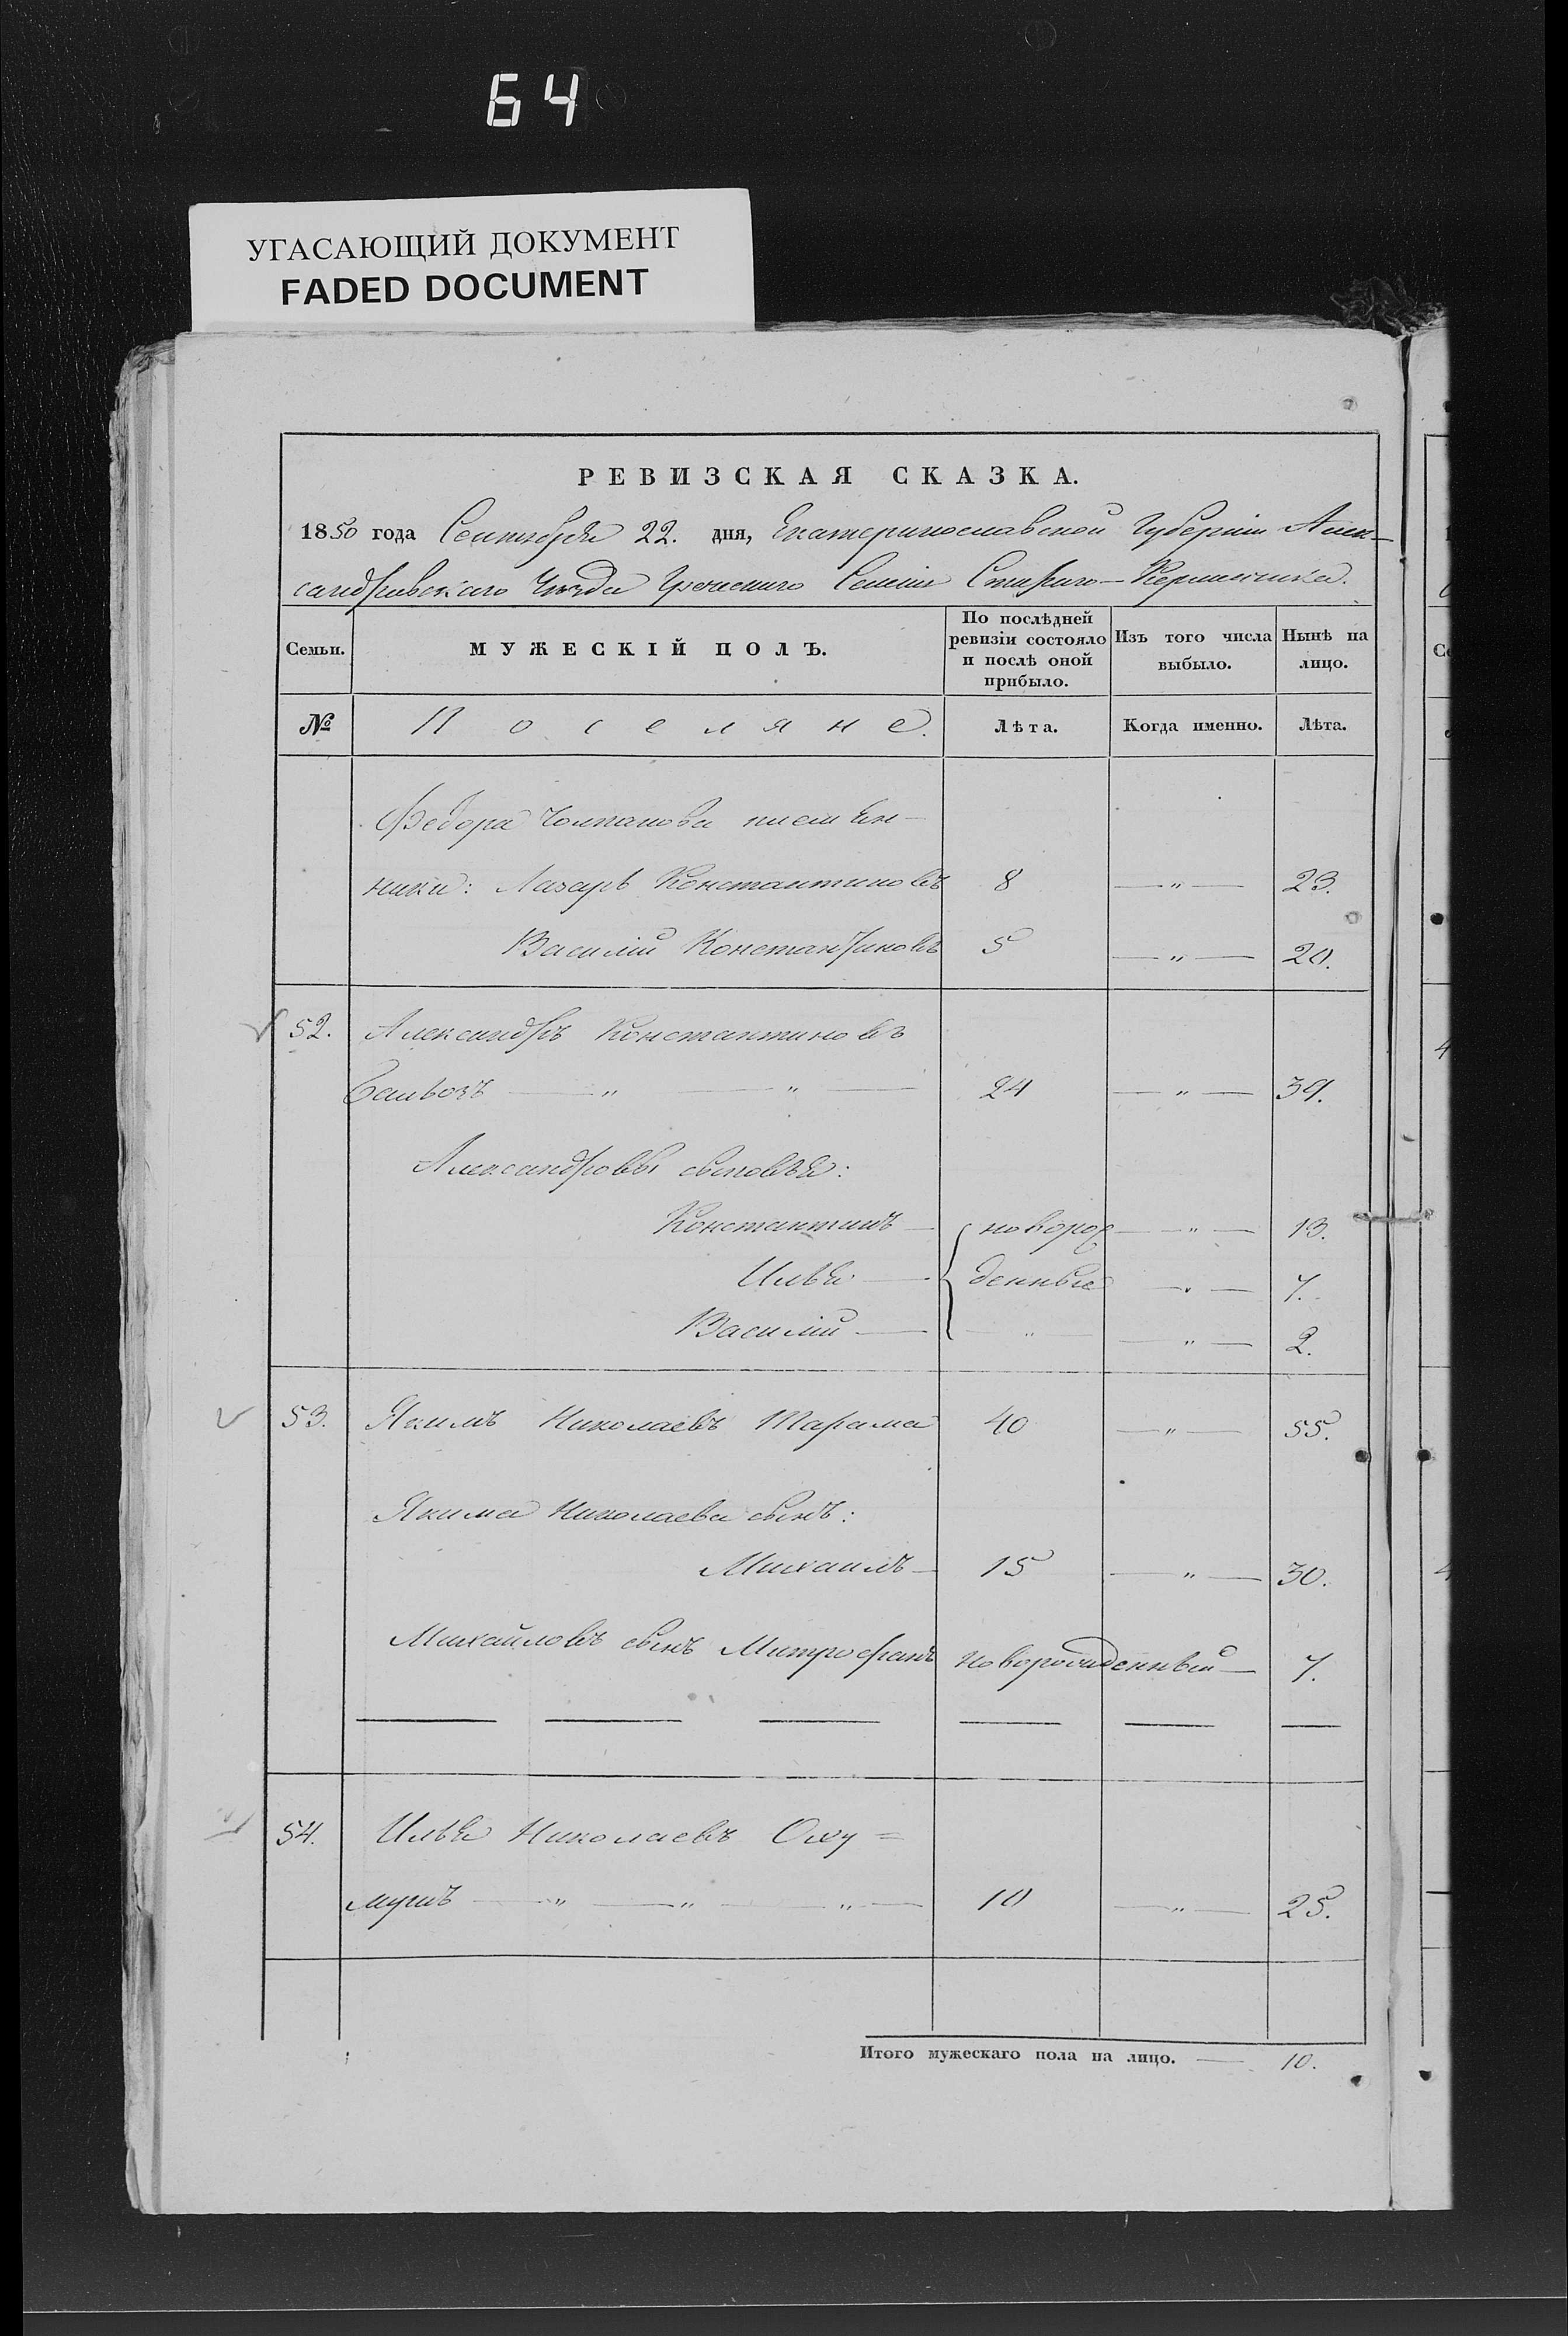 64
УГАСАЮЩИЙ ДОКУМЕНТ
FADED DOCUMENT
РЕВИЗСКАЯ СКАЗКА.
1850 года Сентября 22. дня, Екатеринославской Губерніи Алек-
сандровскаго Уезда Греческаго Селенія Стараго-Керменчика.
Семьи. МУЖЕСКІЙ ПОЛЪ. По послѣдней ревизіи состояло и послѣ оной прибыло. Изъ того числа выбыло. Нынѣ на лицо.
№ Поселяне. Лѣта. Когда именно. Лѣта.
Федора племян-
ники: Лазарь Константиновъ 8 — " — 23.
Василій Константиновъ 5 — " — 20.
52. Александръ Константиновъ
— " — " — 24 — " — 39.
Александровы сыновья:
Константинъ — { новорож — " — 13.
Илья — денные — " — 7.
Василій — " — " — 2.
53. Якимъ Николаевъ Тарама 40 — " — 55.
Якима Николаева сынъ:
Михаилъ — 15 — " — 30.
Михайловъ сынъ Митрофанъ новорожденный — 7.
54. Илья Николаевъ =
— " — " — " — 10 — " — 25.
Итого мужескаго пола на лицо. — 10.